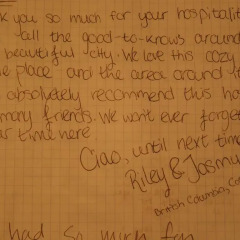 k you so much for your hospitalit
all the good-to-knows around
beautiful city. We love this cozy
e place and the area around it
absolutely recommend this ho
many friends. We won't ever forget
ur time here
Ciao, until next time
Riley & Jasmi
British Columbia, Ca
had so much fun